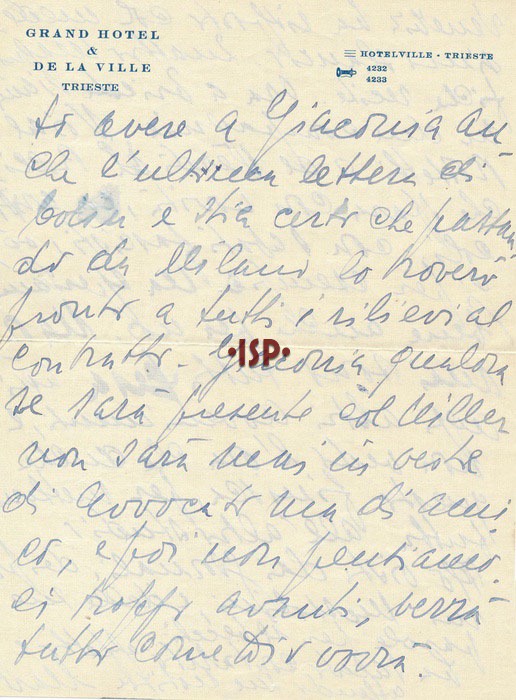 GRAND HOTEL
&
DE LA VILLE
TRIESTE
HOTELVILLE - TRIESTE
4232
4233
to avere a Giaconia an
che l'ultima lettera di
e stia certo che passan
do da Milano lo troverò
pronto a tutti i rilievi al
contratto - Giaconia qualora
se sarà presente col Miller
non sarà mai in veste
di avvocato ma di ami
co, e poi non pentiamo
ci troppo avanti, verrà
tutto come Dio vorrà.
·ISP·